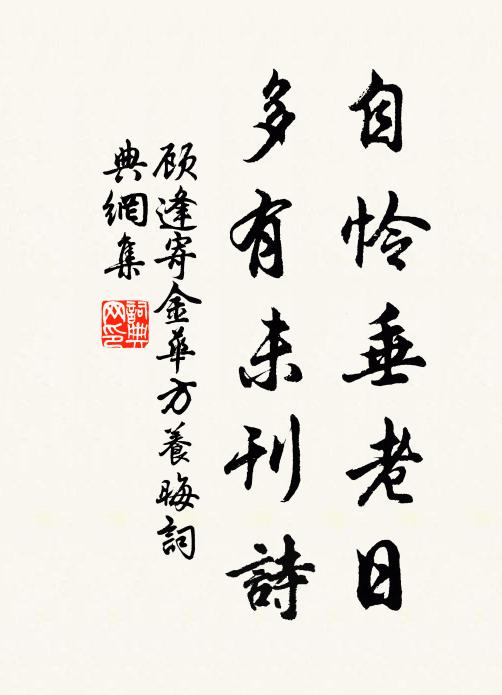 自怜垂老日
多有未刊詩
顾逢寄金華方養晦詞
典網集
詞典網印